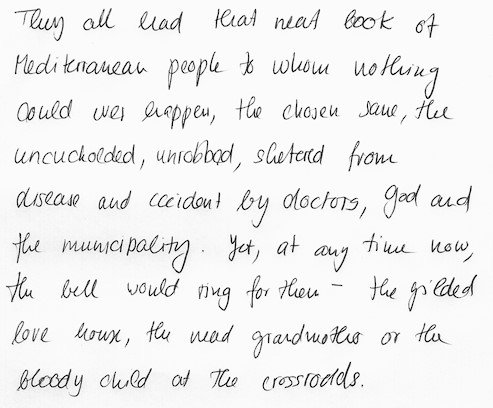 They all had that neat look of
Mediterranean people to whom nothing
could ever happen, the chosen sane, the
uncucholded, unrobbed, sheltered from
disease and accident by doctors, God and
the municipality. Yet, at any time now,
the bell would ring for them – the gilded
love house, the mad grandmother or the
bloody child at the crossroads.